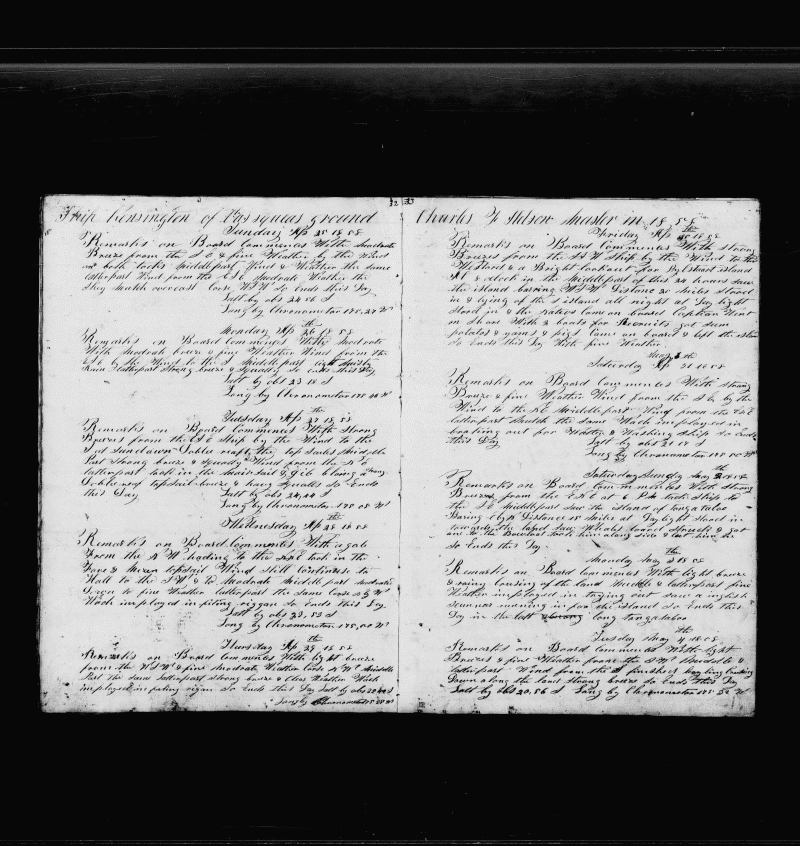 32 33
Ship Kensington of Vasquas ground
Sunday Ap 25 1858
Remarks on Board Commences With Modrate
Breze from the S E & fine Weather by the Wind
on both tacks middle part Wind & Weather the same
latter part Wind from the ESE Modrate Weather the
Sky overcast Corse WSW So Ends this Day
Latt by obs 24 56 S
Long by Chronometer 175,27 W
Monday Ap 26th 18 58
Remarks on Board Commences With Modrate
With Modrate breze & fine Weather Wind from the
ESE by the Wind to the S Middle part light
Rain latter part Strong breeze & Squaly So ends this Day
Latt by obs 23 18 S
Long by Chronometer 175 44 W
Tuesday Ap 27th 18 58
Remarks on Board Commences With Strong
Brezes from the ESE Ship by the Wind to the
S at Sundawn Doble reaft the top Sails Middle
Part Strong breze & Squaly Wind from the S E
latter part hall in the Main Sail & Gib bloing a Strong
Doble reef top sail breze & havy Squalls So Ends
this Day Latt by obs 24,44 S
Long by Chronometer 175 05 W
Wednesday Ap 28th 18 58
Remarks on Board Commences With a gale
From the S W heading to the took in the
Fore & Mizen top sail Wind Still Continues to
Hall to the SW & to Modrate Middle part Modrate
& fine Weather latter part the Same Corse N by W
Wach imployed in fiting riggan So Ends this Day
Latt by obs 23,53 S
Long by Chronometer 175,00 W
Thursday Ap 29th 18 58
Remarks on Board Commences With light breze
from the WSW & fine Modrate Weather Corse N W Middle
Part the Same latter part Strong breze & Clear Weather Wach
imployed in fiting rigan So Ends this Day Latt by obs 22 S
Long by Chronometer 175 28 W
Charles F Stetson Master in 18 58
Friday Ap 30th 18 58
Remarks on Board Commences With Strong
Brezes from the SSW Ship by the Wind to the
Westward & a Bright lookout for island
At 1 oclock in the Middle part of this 24 hours saw
the island baring WSW Distance 20 miles Stood
in & lying of the S island all night at Day light
Stood in & the natives came on board Captain Went
on Shore With 2 boats for Recruits got sum
potatos & yams & pigs came on board & left the island
So Ends this Day With fine Weather
May 1th
Saturday Ap 31 18 58
Remarks on Board Commences With Strong
Breze & fine Weather Wind from the S E by the
Wind to the N E Middle part Wind from the ESE
latter part Much the Same Wach imployed in
boating out for Water & Washing Ship So Ends
this Day Latt by obs 21 58 S
Long by Chronometer 175 50 W
Saturday Sunday May 2th 18 58
Remarks on Board Commences With Strong
Brezes from the ENE at 6 P M tack Ship to
the S E Middle part Saw the island of tongataboo
Baring Distance 15 miles at Day light Stood in
towards the land saw Whales lowed Struck & got
one to the Bow boat took him along Side & cut him in
So Ends this Day
Monday May 3th 18 58
Remarks on Board Commences With light breze
& rainy Cousing of the land Middle & latter part fine
Weather imployed in trying out saw a inglish
runing in for the island So Ends this
Day in the long tongataboo
Tusday May 4th 18 58
Remarks on Board Commences With light
Brezes & fine Weather from the SW Middle &
latter part Wind from the S
Down along the land Strong breze So Ends this Day
Latt by obs 20,56 S Long by Chronometer 175 52 W